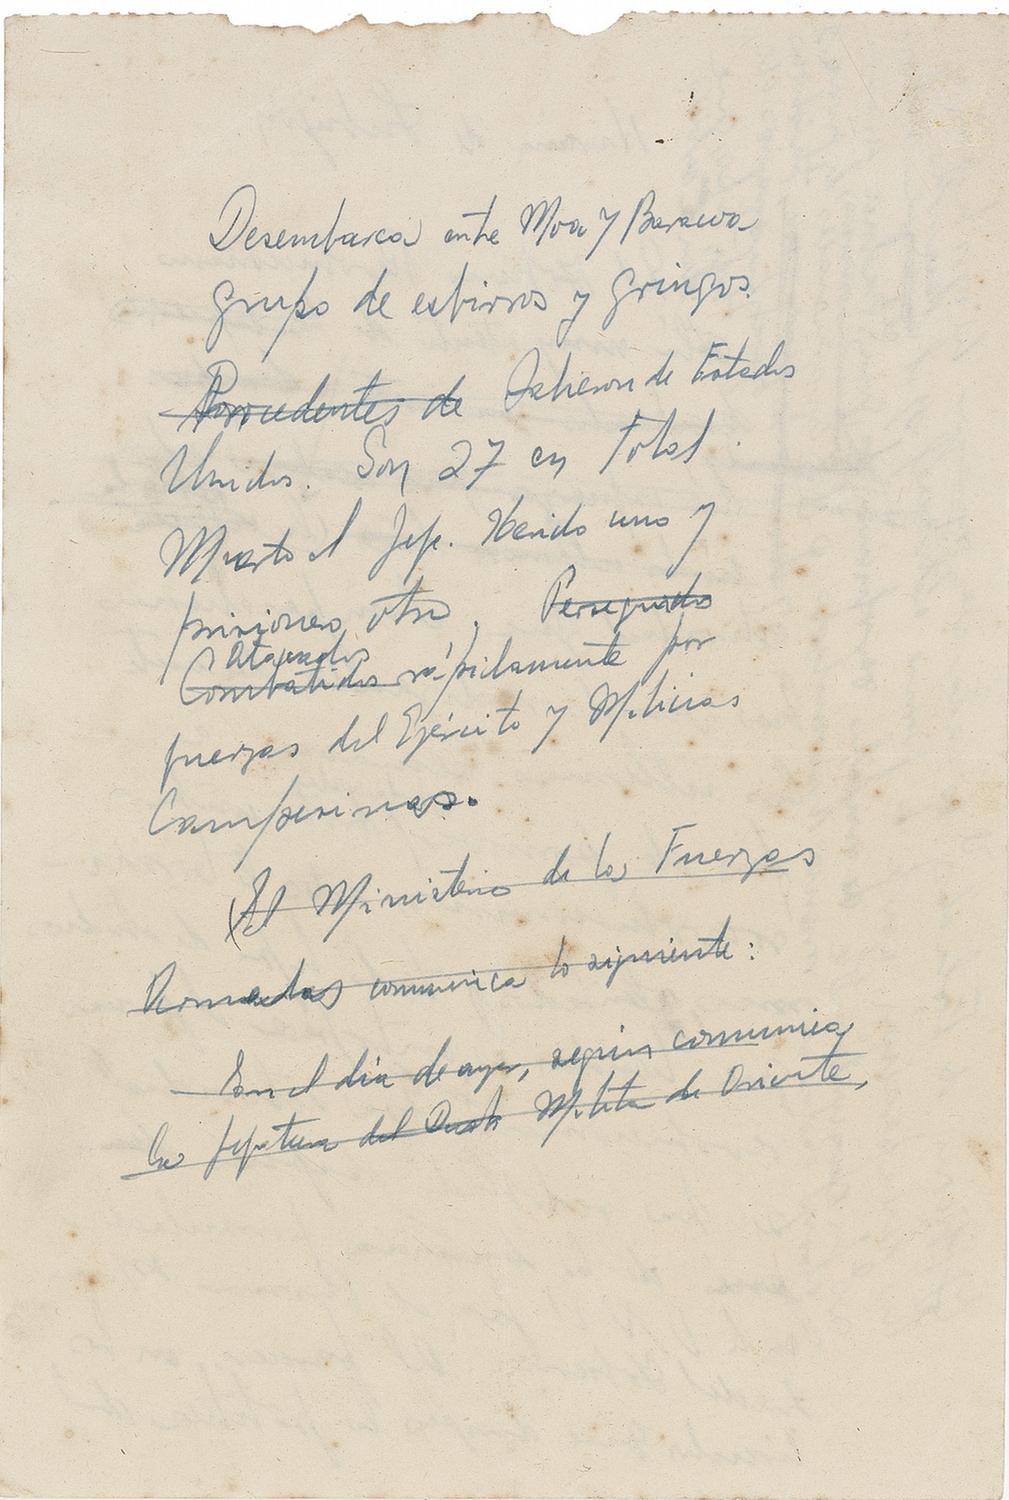 Desembarca entre Moa y Baracoa
grupo de esbirros y gringos.
Procedentes de Salieron de Estados
Unidos. Son 27 en Total.
Muerto el Jefe. Herido uno y
prisionero otro. Perseguidos
Atacados
Combatidos rápidamente por
fuerzas del Ejército y Milicias
Campesinas.
(El Ministerio de las Fuerzas
Armadas comunica lo siguiente:
En el día de ayer, según comunica
la Jefatura del Milita de Oriente,